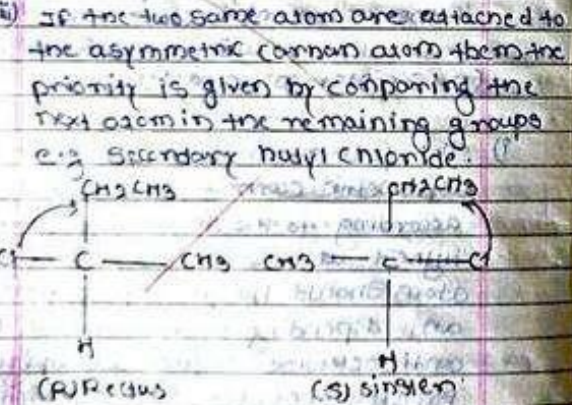 ii) If the two same atom are attached to
the asymmetric carban atom them the
priority is given by comparing the
next atom in the remaining groups
e.g secondary butyl chloride.
CH2CH3 CH2CH3
Cl — C — CH3 CH3 — C — Cl
H H
(R) Rectus (S) sinster